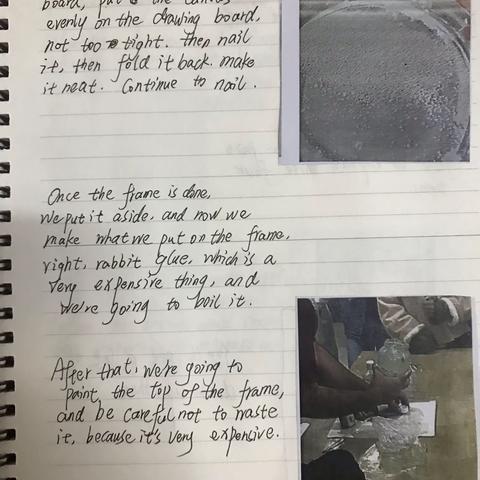 board, put the canvas
evenly on the drawing board,
not too tight. then nail
it, then fold it back. make
it neat. Continue to nail.
Once the frame is done,
we put it aside, and now we
make what we put on the frame,
right, rabbit glue, which is a
very expensive thing, and
we're going to boil it.
After that, we're going to
paint the top of the frame,
and be careful not to waste
it, because it's very expencive.